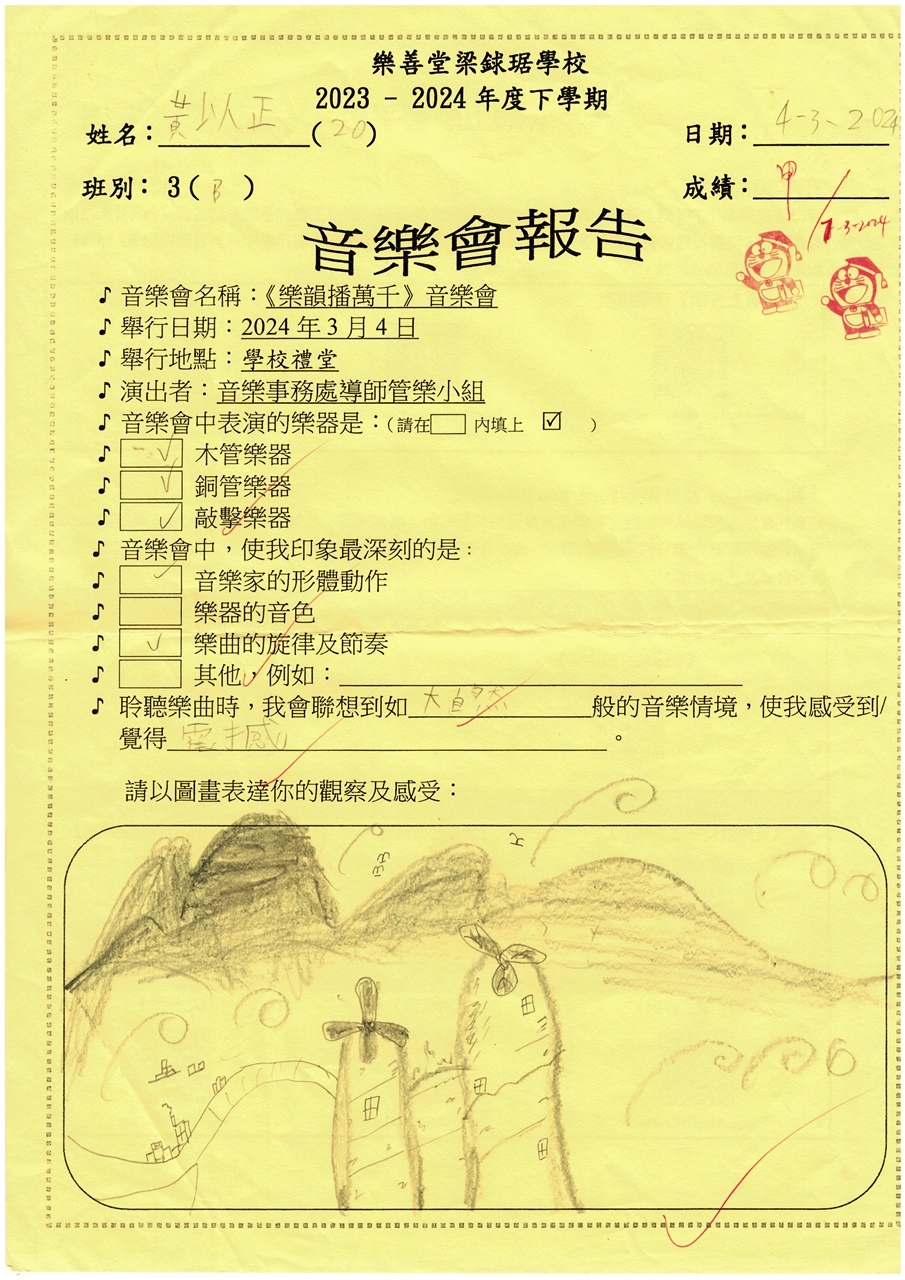 樂善堂梁銶琚學校
2023 - 2024 年度下學期
姓名：黃以正(20) 日期：4-3-2024
班別： 3 ( B ) 成績：甲
7-3-2024
音樂會報告
♪ 音樂會名稱：《樂韻播萬千》音樂會
♪ 舉行日期：2024 年 3 月 4 日
♪ 舉行地點：學校禮堂
♪ 演出者：音樂事務處導師管樂小組
♪ 音樂會中表演的樂器是：（請在□ 內填上 ☑ ）
♪ ☑ 木管樂器
♪ ☑ 銅管樂器
♪ ☑ 敲擊樂器
♪ 音樂會中，使我印象最深刻的是：
♪ ☑ 音樂家的形體動作
♪ □ 樂器的音色
♪ ☑ 樂曲的旋律及節奏
♪ □ 其他，例如：
♪ 聆聽樂曲時，我會聯想到如大自然般的音樂情境，使我感受到/
覺得震撼。
請以圖畫表達你的觀察及感受：